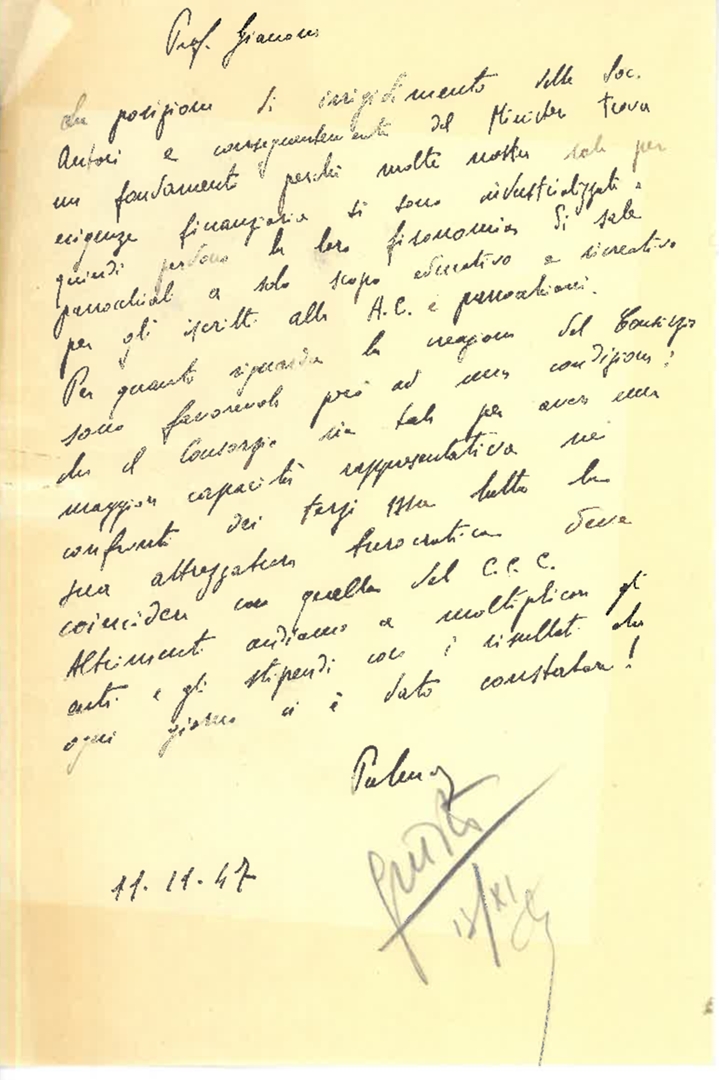 Prof.
La posizione di irrigidimento della Soc.
Autori e conseguentemente del Ministero trova
un fondamento perché molte nostre sale per
esigenze finanziarie si sono industrializzate e
quindi perdono la loro fisonomia di sale
parrocchiali a solo scopo educativo e ricreativo
per gli iscritti alla A.C. e parrocchiani.
Per quanto riguarda la creazione del Consorzio
sono favorevole però ad una condizione:
che il Consorzio sia tale per avere una
maggior capacità rappresentativa nei
confronti dei terzi ma tutta la
sua attrezzatura burocratica deve
coincidere con quella del C.C.C.
Altrimenti andiamo a moltiplicare gli
enti e gli stipendi con i risultati che
ogni giorno ci è dato constatare!
11-11-47
13/XI